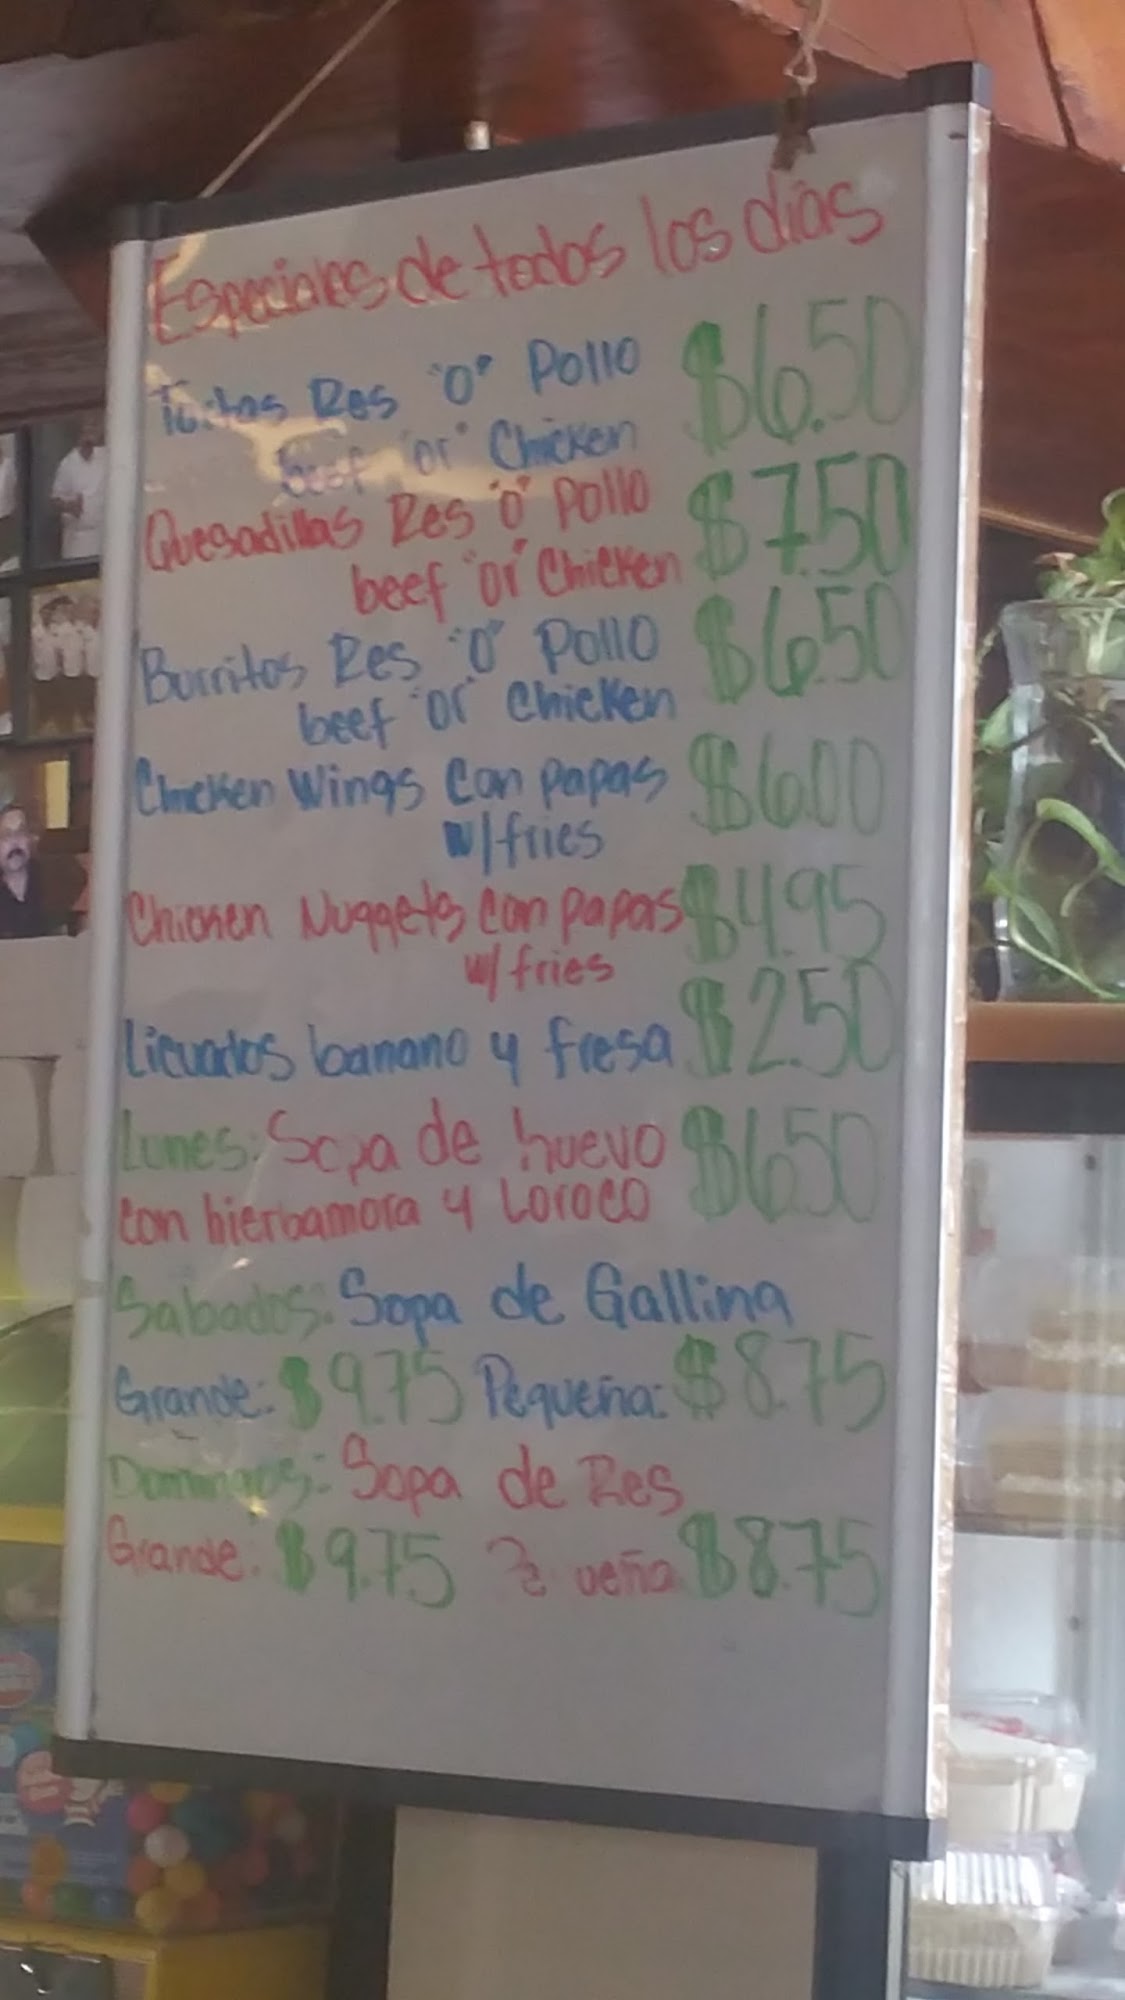 Especiales de todos los dias
Res "O" Pollo $6.50
beef "or" Chicken
Quesadillas Res "O" Pollo $7.50
beef "or" Chicken
Burritos Res "O" Pollo $6.50
beef "or" Chicken
Chicken Wings con papas $6.00
w/fries
Chicken Nuggets con papas $4.95
w/fries
Licuados banano y fresa $2.50
Lunes: Sopa de huevo $6.50
con hierbamora y Loroco
Sabados: Sopa de Gallina
Grande: $9.75 Pequeña: $8.75
Domingos: Sopa de Res
Grande: $9.75 $8.75